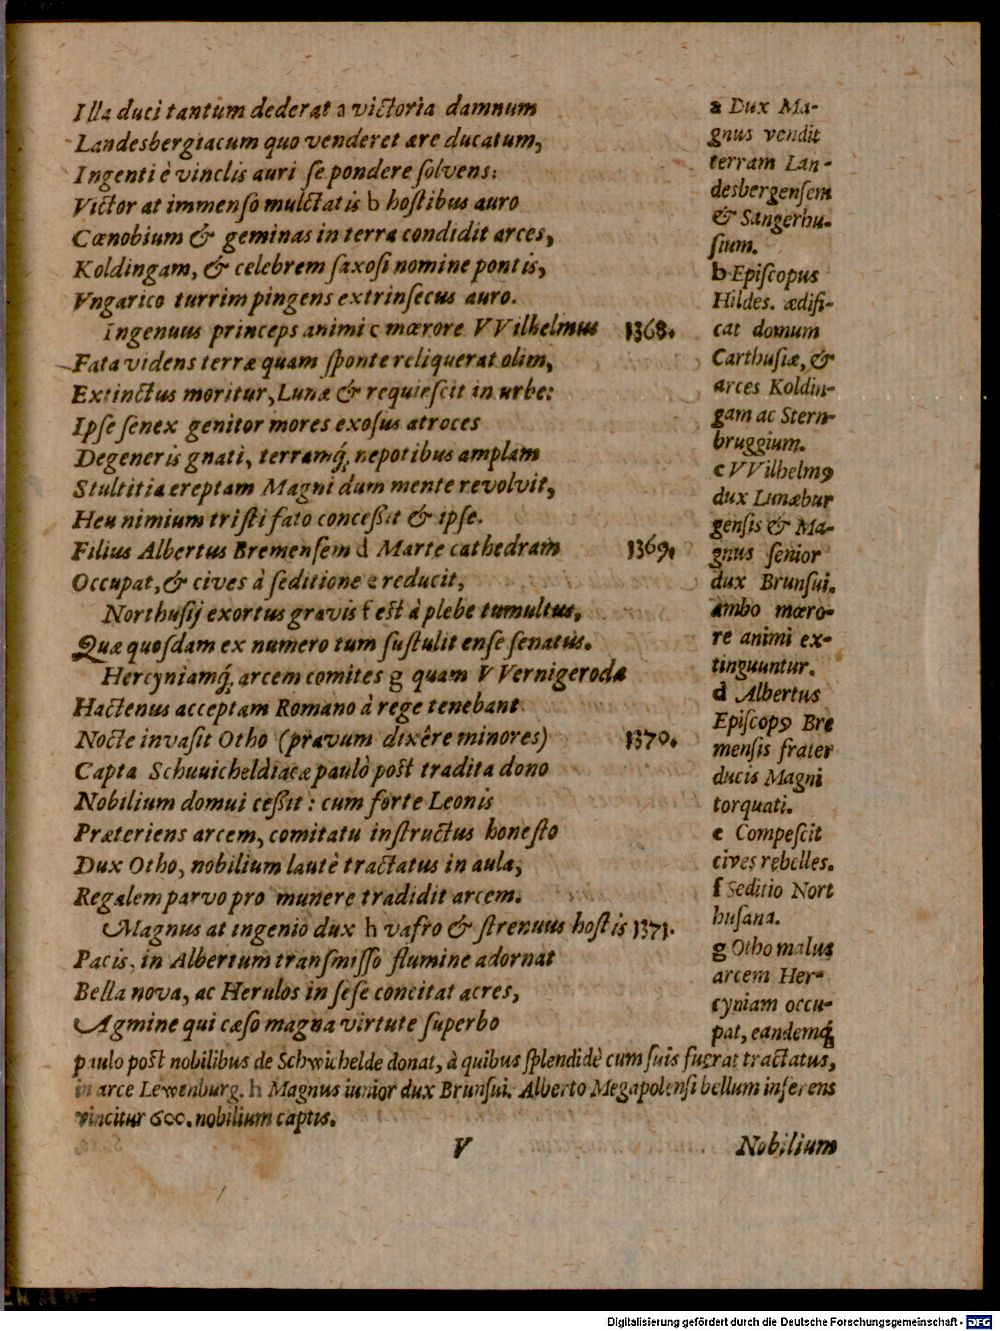 Illa duci tantum dederat a victoria damnum
Landesbergiacum quo venderet ære ducatum,
Ingenti è vinclis auri se pondere solvens:
Victor at immenso mulctatis b hostibus auro
Cœnobium & geminas in terra condidit arces,
Koldingam, & celebrem saxosi nomine pontis,
Vngarico turrim pingens extrinsecus auro.
Ingenuus princeps animi c mœrore VVilhelmus 1368.
Fata videns terræ quam sponte reliquerat olim,
Extinctus moritur, Lunæ & requiescit in urbe:
Ipse senex genitor mores exosus atroces
Degeneris gnati, terramq́; nepotibus amplam
Stultitia ereptam Magni dum mente revolvit,
Heu nimium tristi fato conceßit & ipse.
Filius Albertus Bremensem d Marte cathedram 1369.
Occupat, & cives à seditione e reducit,
Northusij exortus gravis f est à plebe tumultus,
Quæ quosdam ex numero tum sustulit ense senatus.
Hercyniamq́; arcem comites g quam VVernigeroda
Hactenus acceptam Romano à rege tenebant
Nocte invasit Otho (pravum dixêre minores) 1370.
Capta Schuuicheldiacæ paulò post tradita dono
Nobilium domui ceßit: cum forte Leonis
Præteriens arcem, comitatu instructus honesto
Dux Otho, nobilium lautè tractatus in aula,
Regalem parvo pro munere tradidit arcem.
Magnus at ingenio dux h vafro & strenuus hostis 1371.
Pacis, in Albertum transmisso flumine adornat
Bella nova, ac Herulos in sese concitat acres,
Agmine qui cæso magna virtute superbo
a Dux Ma-
gnus vendit
terram Lan-
desbergensem
& Sangerhu-
sium.
b Episcopus
Hildes. ædifi-
cat domum
Carthusiæ, &
arces Koldin-
gam ac Stern-
bruggium.
c VVilhelmꝰ
dux Lunæbur
gensis & Ma-
gnus senior
dux Brunsui.
ambo mœro-
re animi ex-
tinguuntur.
d Albertus
Episcopꝰ Bre
mensis frater
ducis Magni
torquati.
e Compescit
cives rebelles.
f Seditio Nort
husana.
g Otho malus
arcem Her-
cyniam occu-
pat, eandemq́;
paulo post nobilibus de Schwichelde donat, à quibus splendidè cum suis fuerat tractatus,
in arce Lewenburg. h Magnus iunior dux Brunsui. Alberto Megapolensi bellum inferens
vincitur 600. nobilium captis.
V Nobilium
Digitalisierung gefördert durch die Deutsche Forschungsgemeinschaft - DFG